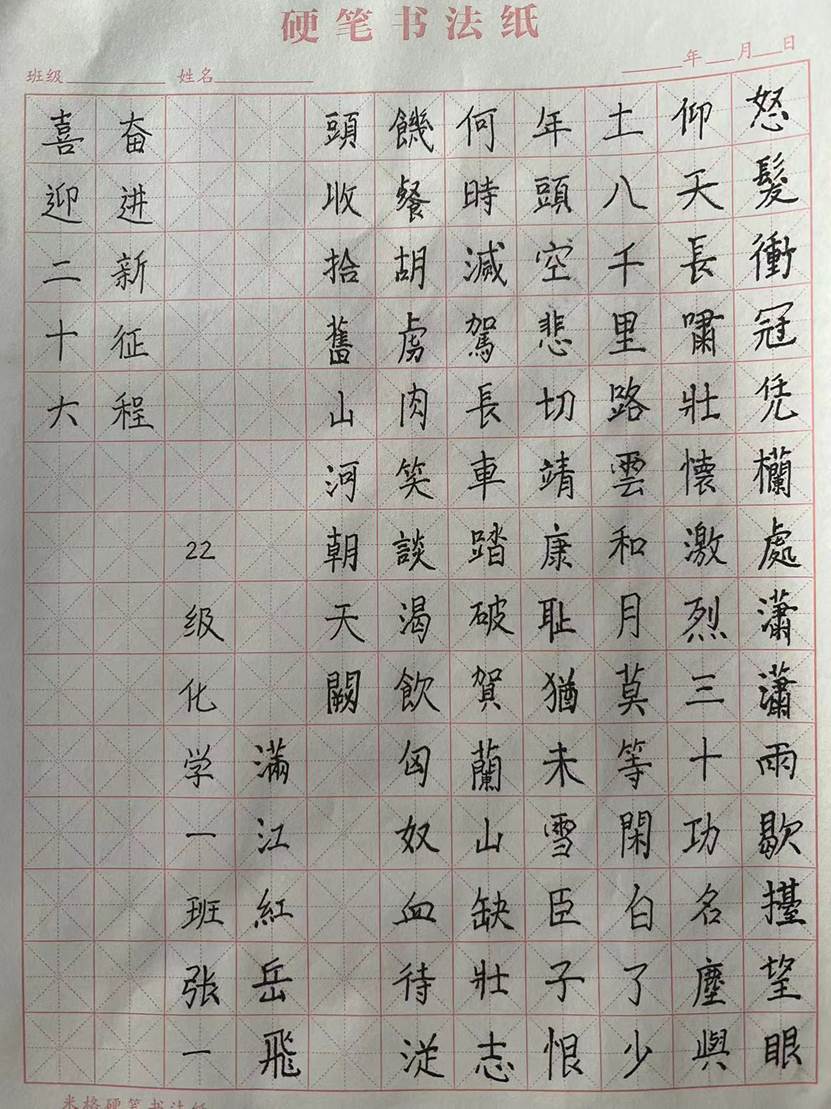 硬笔书法纸
班级 姓名 年 月 日
怒髮衝冠凭欄處瀟瀟雨歇擡望眼
仰天長嘯壯懷激烈三十功名塵與
土八千里路雲和月莫等閑白了少
年頭空悲切靖康耻猶未雪臣子恨
何時滅駕長車踏破賀蘭山缺壯志
饑餐胡虏肉笑談渴飲匈奴血待從
頭收拾舊山河朝天闕
滿江紅岳飛
22级化学一班张一
奋进新征程
喜迎二十大
米格硬笔书法纸